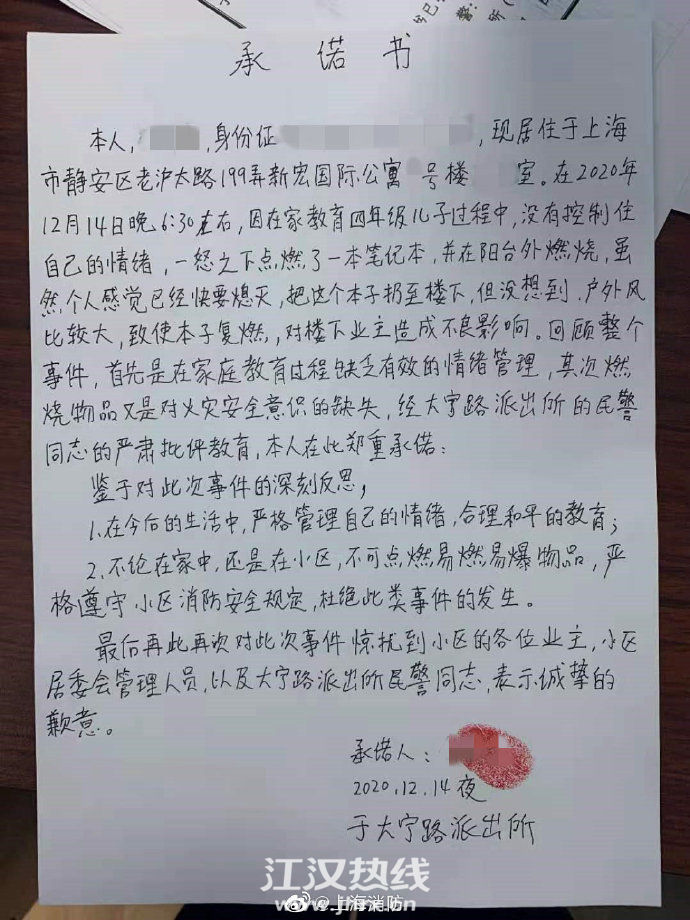 承诺书
本人,身份证,现居住于上海
市静安区老沪太路199弄新宏国际公寓号楼室。在2020年
12月14日晚6:30左右,因在家教育四年级儿子过程中,没有控制住
自己的情绪,一怒之下点燃了一本笔记本,并在阳台外燃烧,虽
然个人感觉已经快要熄灭,把这个本子扔至楼下,但没想到户外风
比较大,致使本子复燃,对楼下业主造成不良影响。回顾整个
事件,首先是在家庭教育过程缺乏有效的情绪管理,其次燃
烧物品又是对火灾安全意识的缺失,经大宁路派出所的民警
同志的严肃批评教育,本人在此郑重承诺:
鉴于对此次事件的深刻反思,
1.在今后的生活中,严格管理自己的情绪,合理和平的教育;
2.不论在家中,还是在小区,不可点燃易燃易爆物品,严
格遵守小区消防安全规定,杜绝此类事件的发生。
最后再此再次对此次事件惊扰到小区的各位业主,小区
居委会管理人员,以及大宁路派出所民警同志,表示诚挚的
歉意。
承诺人:
2020.12.14夜
于大宁路派出所
江汉热线
@上海消防